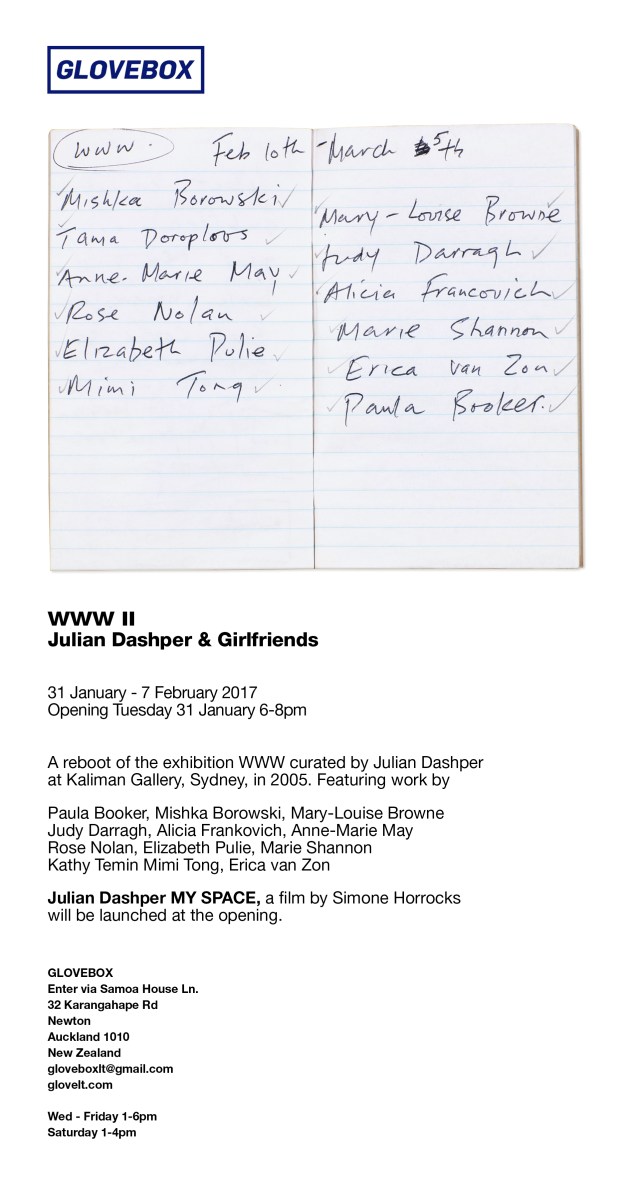 GLOVEBOX
www. Feb 10th - March 5th
Mishka Borowski
Tama Doroploos
Anne-Marie May
Rose Nolan
Elizabeth Pulie
Mimi Tong
Mary-Louise Browne
Judy Darragh
Alicia Francovich
Marie Shannon
Erica van Zon
Paula Booker.
WWW II
Julian Dashper & Girlfriends
31 January - 7 February 2017
Opening Tuesday 31 January 6-8pm
A reboot of the exhibition WWW curated by Julian Dashper
at Kaliman Gallery, Sydney, in 2005. Featuring work by
Paula Booker, Mishka Borowski, Mary-Louise Browne
Judy Darragh, Alicia Frankovich, Anne-Marie May
Rose Nolan, Elizabeth Pulie, Marie Shannon
Kathy Temin Mimi Tong, Erica van Zon
Julian Dashper MY SPACE, a film by Simone Horrocks
will be launched at the opening.
GLOVEBOX
Enter via Samoa House Ln.
32 Karangahape Rd
Newton
Auckland 1010
New Zealand
gloveboxlt@gmail.com
glovelt.com
Wed - Friday 1-6pm
Saturday 1-4pm